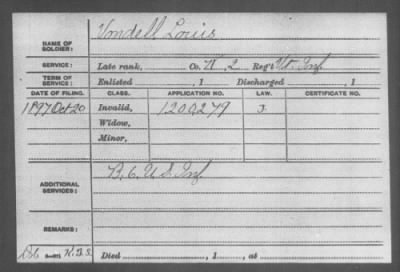 NAME OF SOLDIER: Vondell Louis
SERVICE: Late rank, Co. H, 2 Reg't Vt. Inf.
TERM OF SERVICE: Enlisted , 1 Discharged , 1
DATE OF FILING. CLASS. APPLICATION NO. LAW. CERTIFICATE NO.
1897 Oct 20 Invalid, 1200279 J.
Widow,
Minor,
ADDITIONAL SERVICES: B. 6. U.S. Inf.
REMARKS:
Died , 1 , at